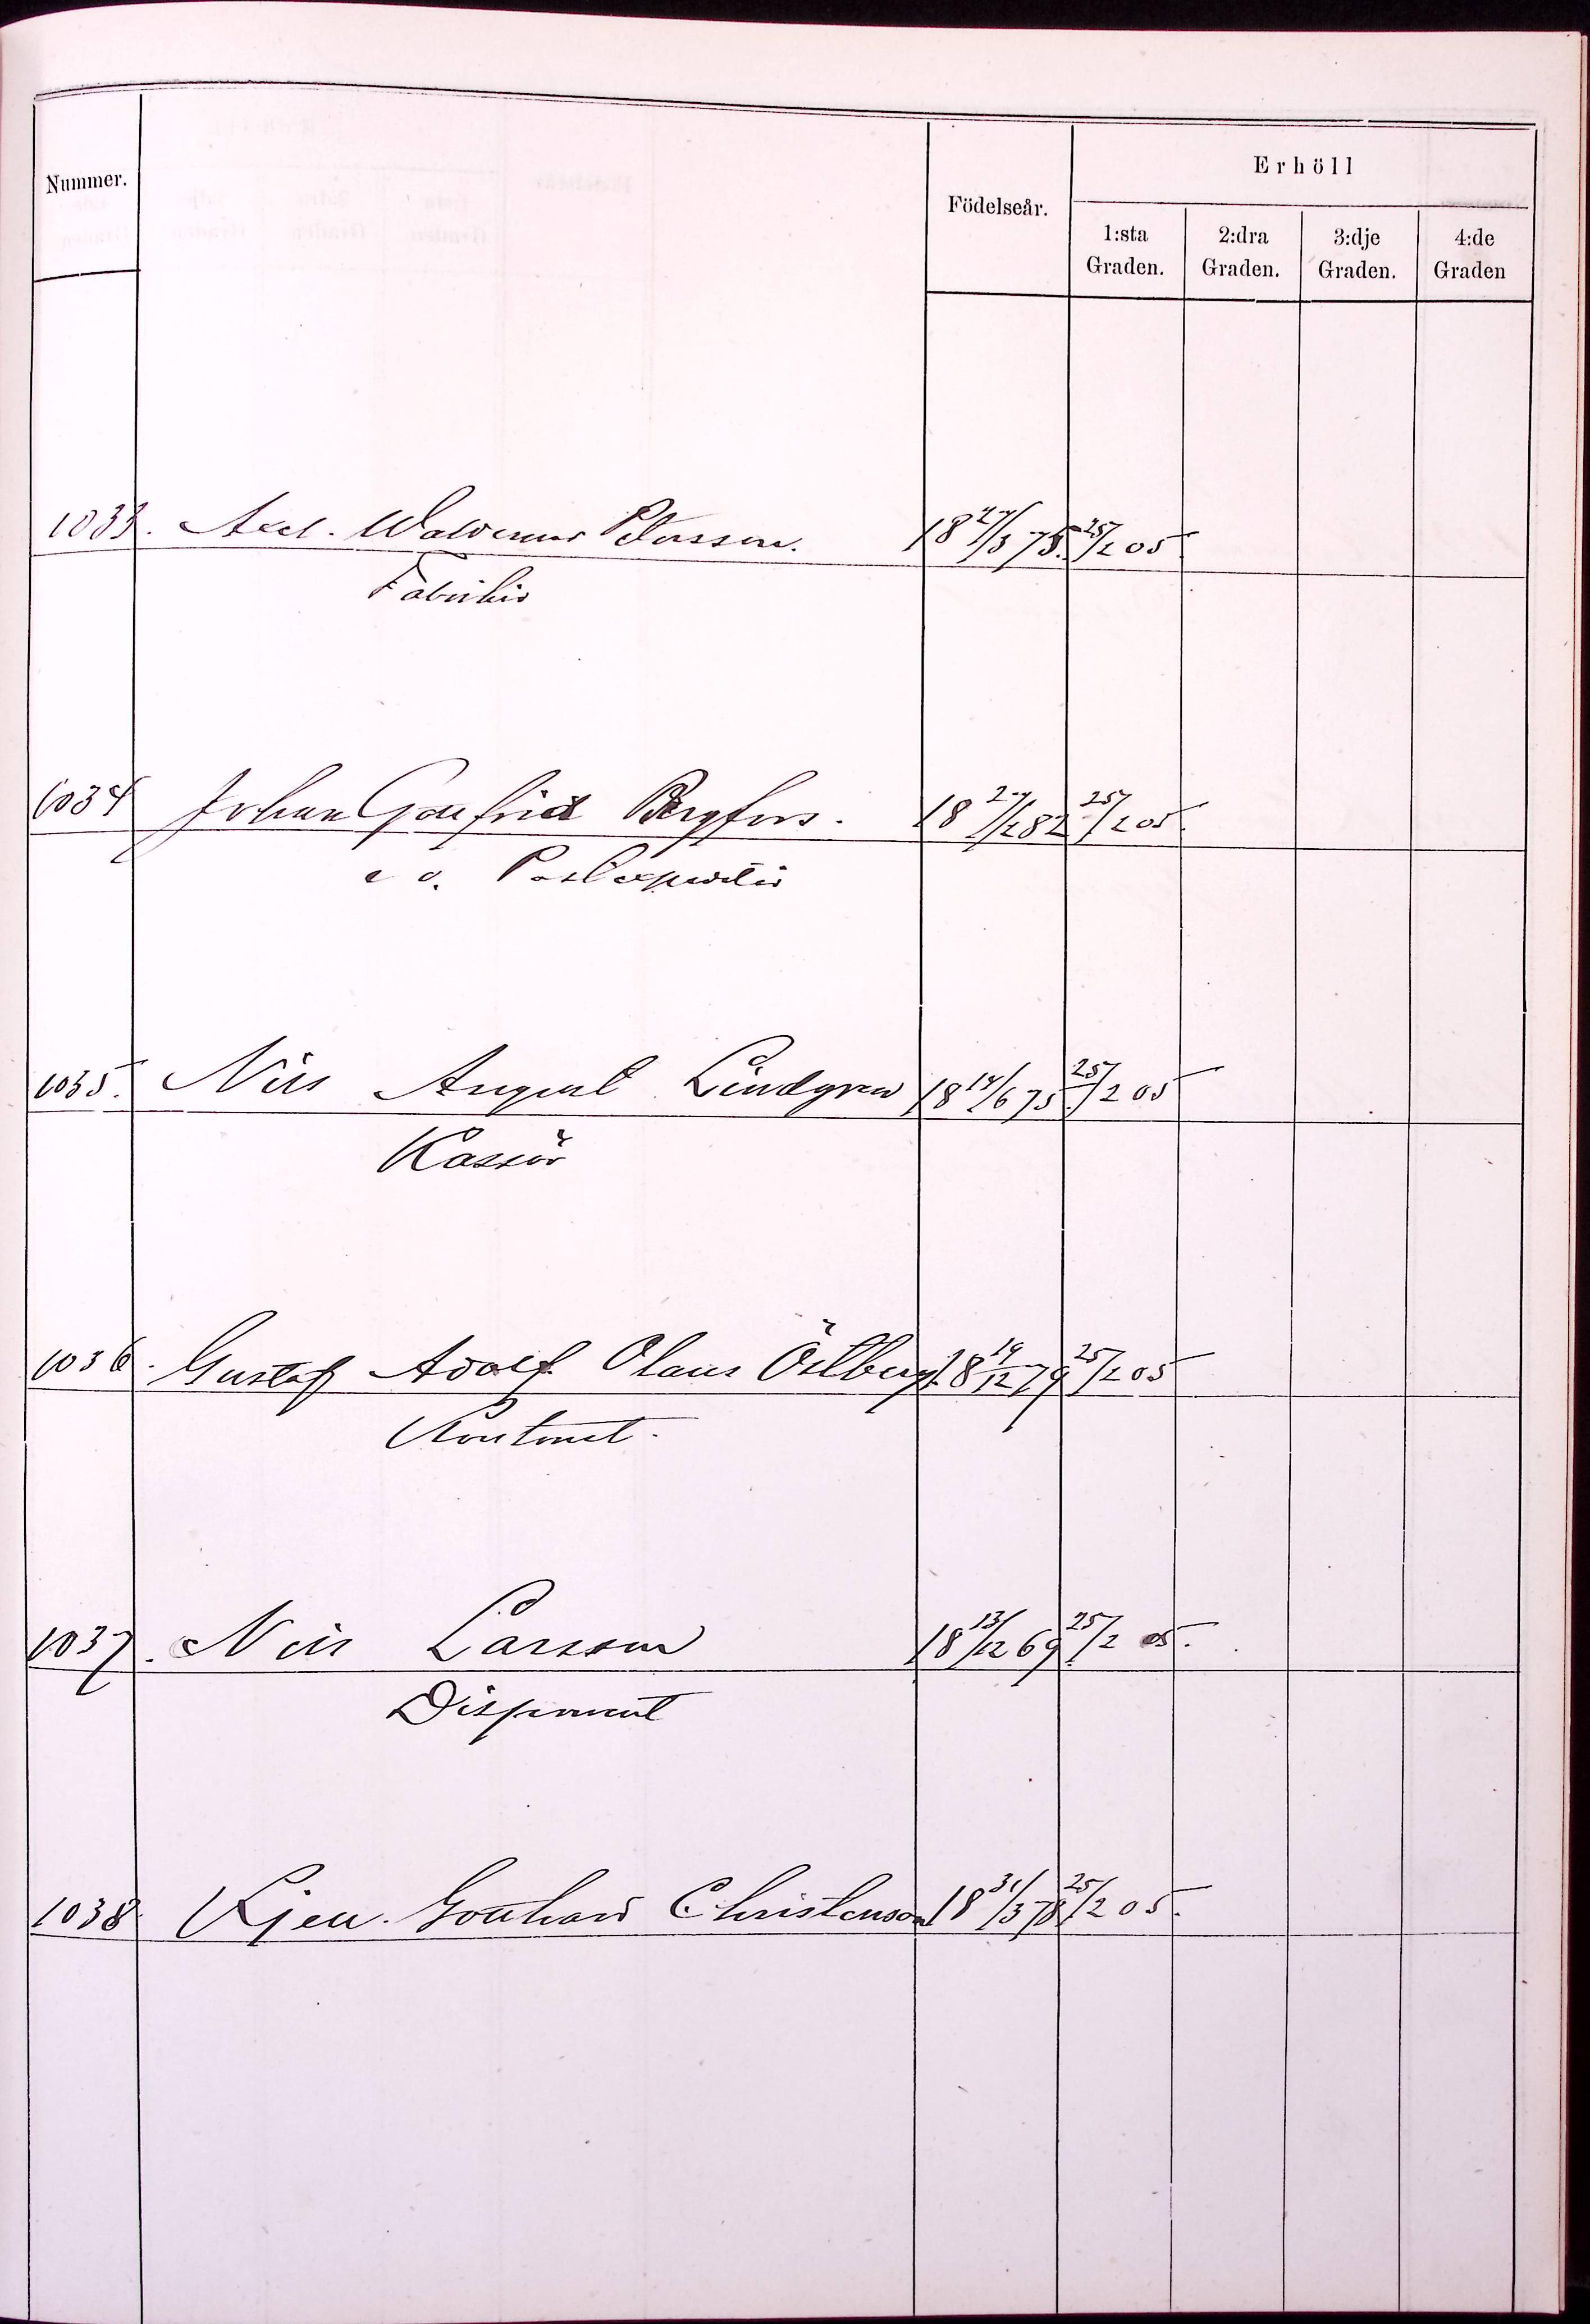 Erhöll
Nummer.
Födelseår.
1:sta 2:dra 3:dje 4:de
Graden. Graden. Graden. Graden
1033. Axel. Waldemar Petersson. 18 27/3 75. 25/2 05
Fabrikör
1034 Johan Gottfrid Bergfors. 18 27/12 82 25/2 05.
e o. Postexpeditör
1035. Nils August Lindgren 18 14/6 75 25/2 05
Kassör
1036. Gustaf Adolf Olaus Östberg. 18 19/12 79 25/2 05
Kontorist.
1037. Nils Larsson 18 13/12 69 25/2 05.
Disponent
1038 Gotthard Christenson 18 31/3 78 25/2 05.